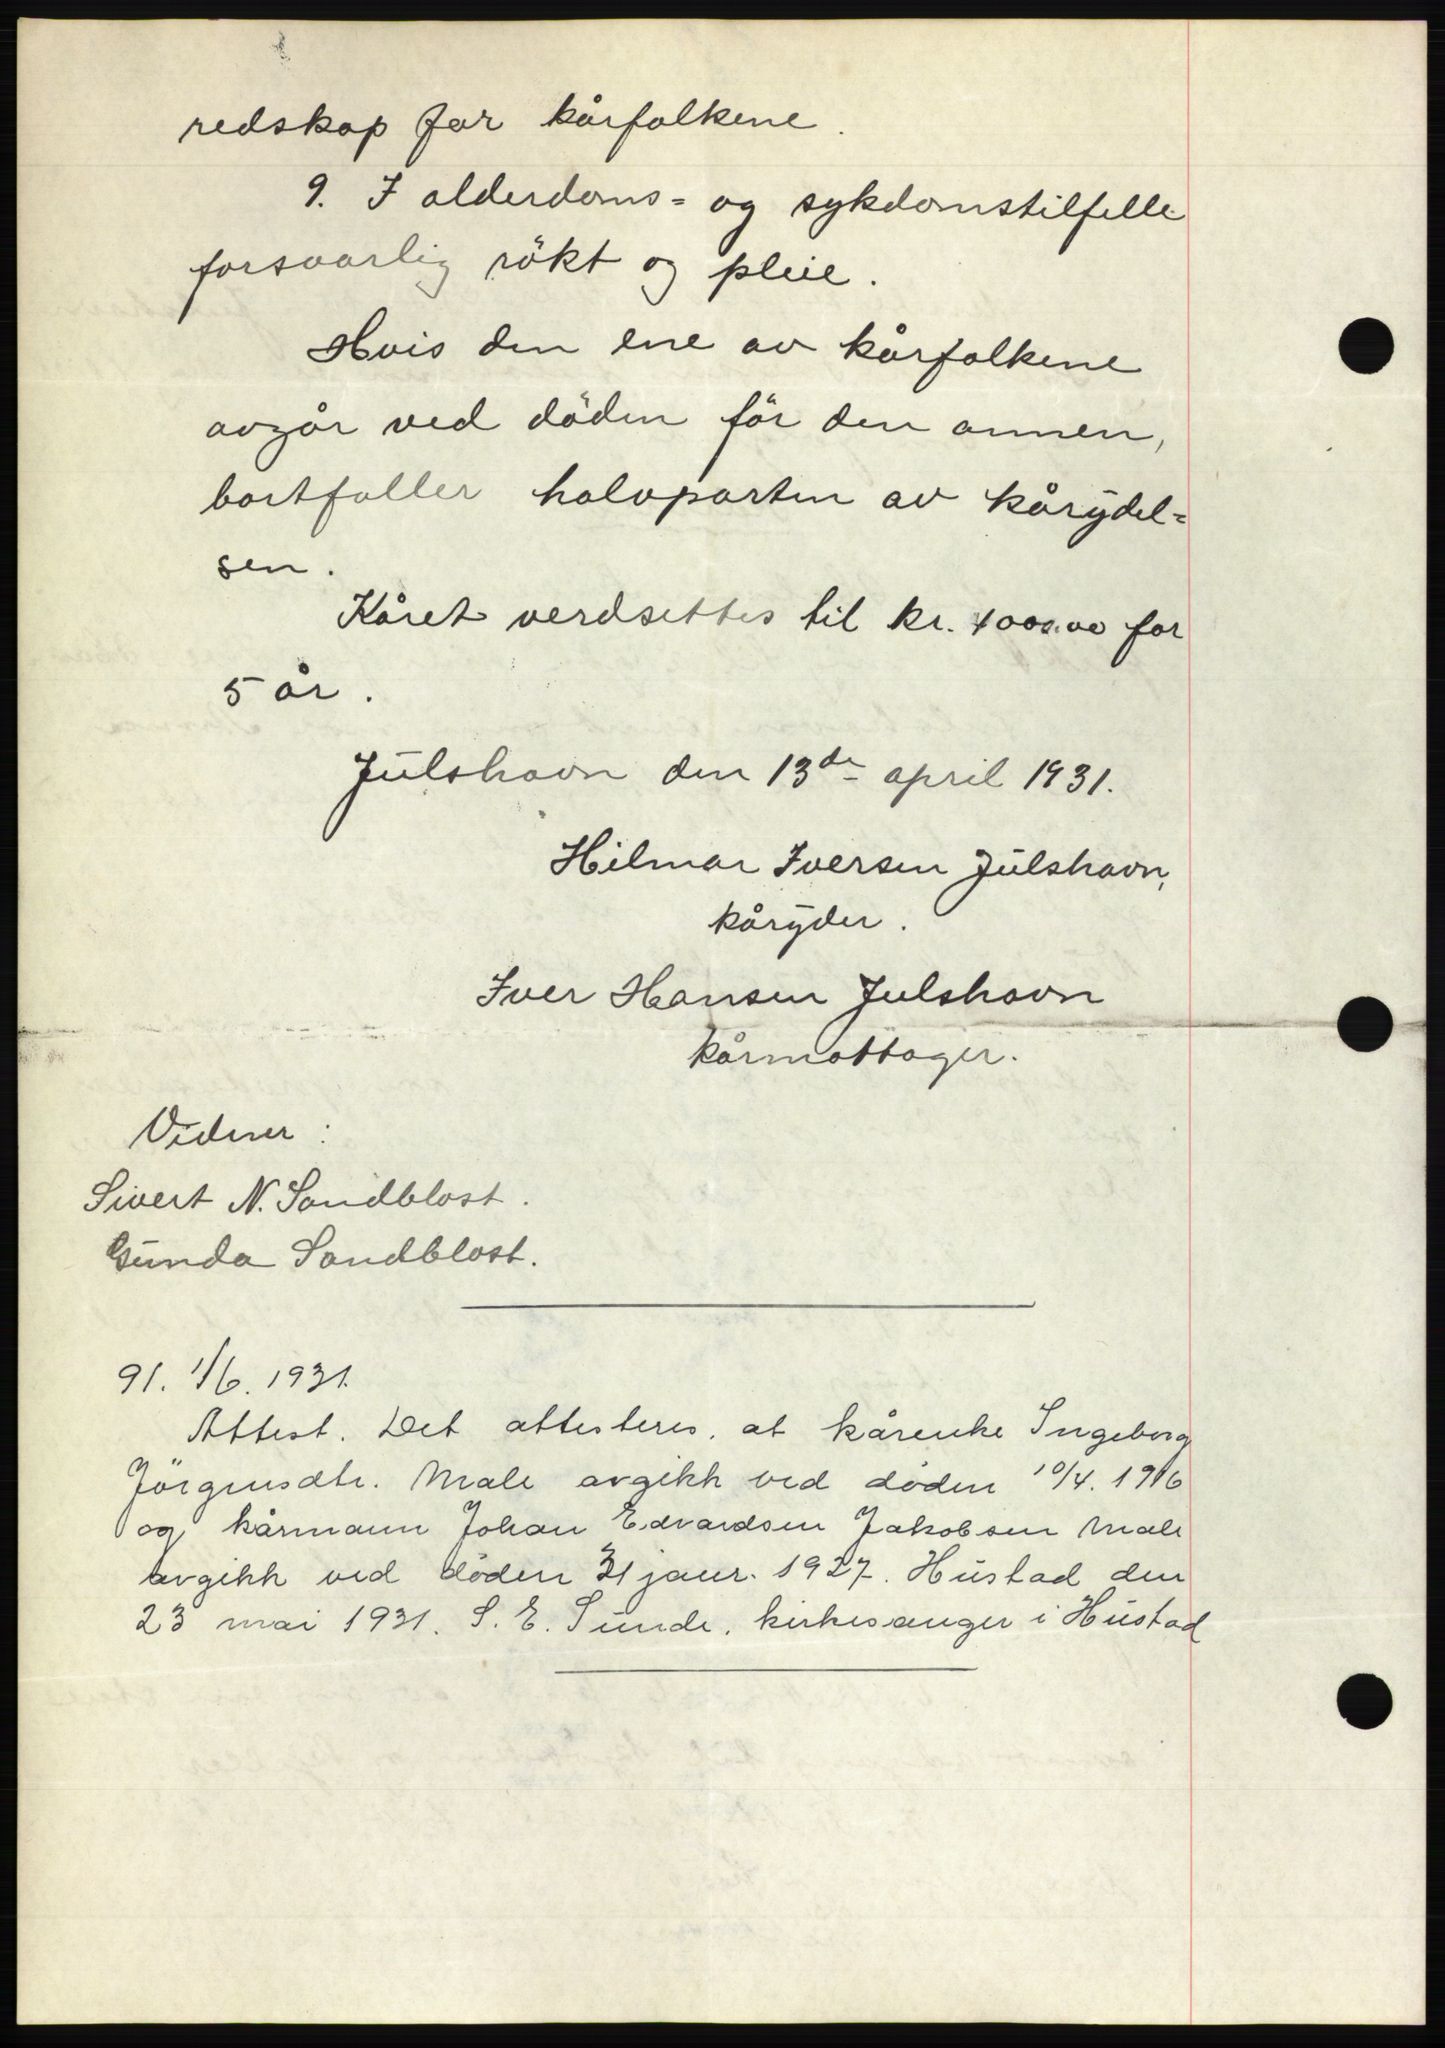 redskap for kårfolkene.
9. I alderdoms= og sykdomstilfelle
forsvarlig rökt og pleie.
Hvis den ene av kårfolkene
avgår ved döden för den annen,
bortfaller halvparten av kårydel=
sen.
Kåret verdsettes til kr. 1000.00 for
5 år.
Julshavn den 13de april 1931.
Hilmar Iversen Julshavn,
kåryder.
Iver Hansen Julshavn
kårmottager.
Vidner:
Sivert N. Sandblost.
Gunda Sandblost.
91. 1/6. 1931.
Attest. Det attesteres, at kårenke Ingeborg
Jörgensdtr. Male avgikk ved döden 10/4. 1916
og kårmann Johan Edvardsen Jakobsen Male
avgikk ved döden 31 janr. 1927. Hustad den
23 mai 1931. S. E. Sunde, kirkesanger i Hustad